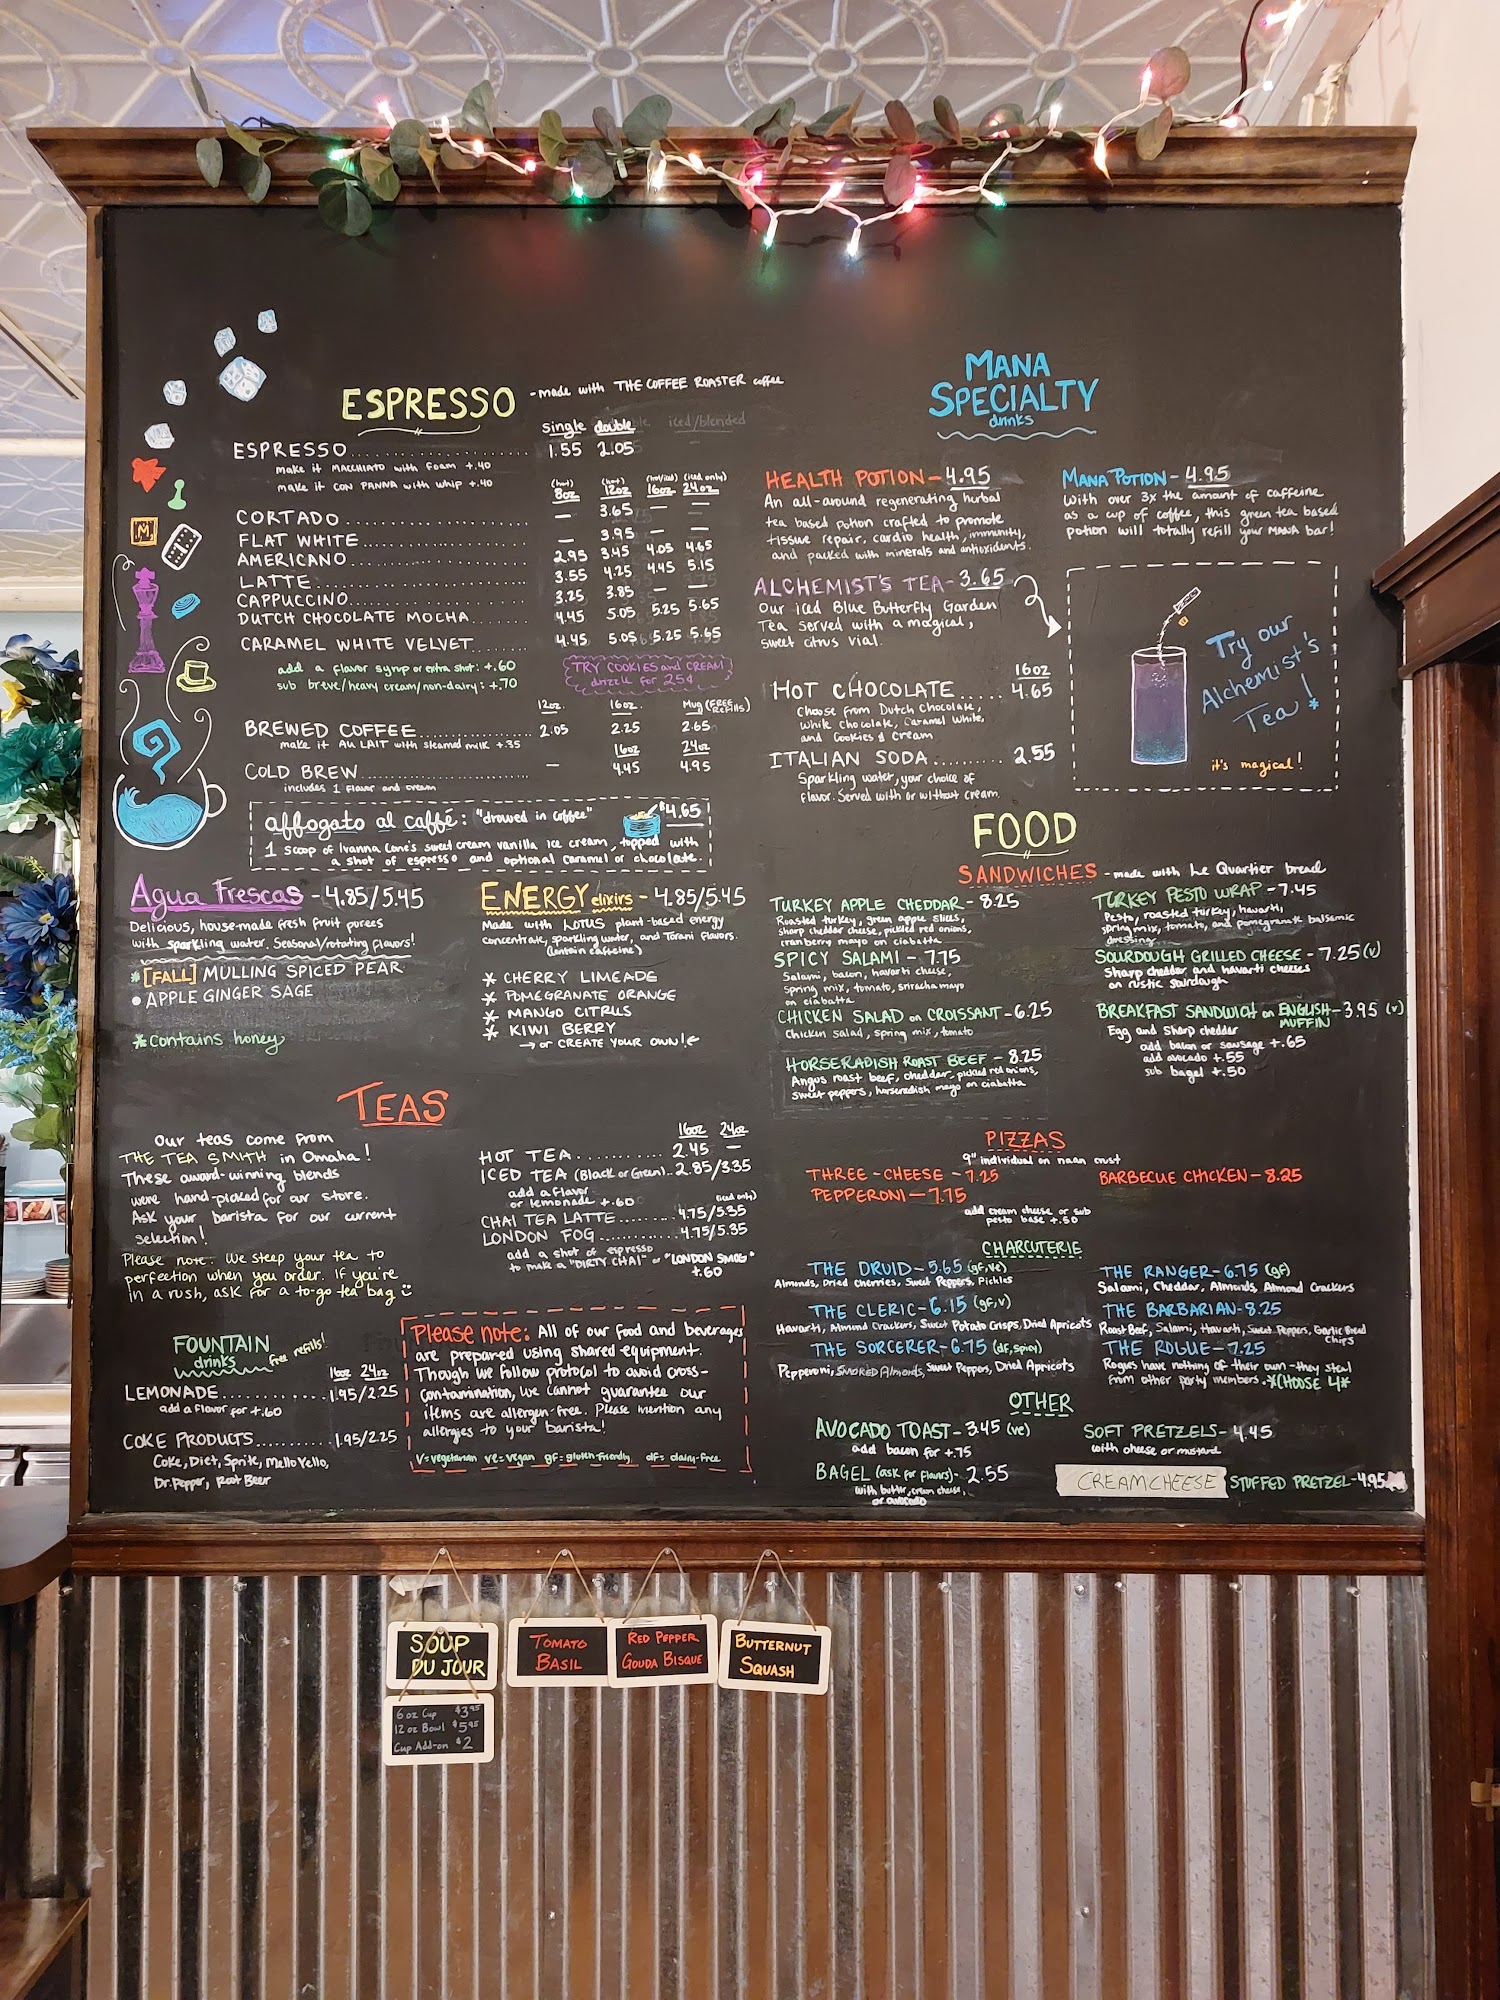 ESPRESSO - made with THE COFFEE ROASTER coffee
single double iced/blended
ESPRESSO 1.55 2.05
make it MACCHIATO with foam +.40
make it CON PANNA with whip +.40
(hot) (hot) (hot/iced) (iced only)
8oz 12oz 16oz 24oz
CORTADO — 3.65 — —
FLAT WHITE — 3.95 — —
AMERICANO 2.95 3.45 4.05 4.65
LATTE 3.55 4.25 4.45 5.15
CAPPUCCINO 3.25 3.85 — —
DUTCH CHOCOLATE MOCHA 4.45 5.05 5.25 5.65
CARAMEL WHITE VELVET 4.45 5.05 5.25 5.65
add a flavor syrup or extra shot: +.60
sub breve/heavy cream/non-dairy: +.70
TRY COOKIES and CREAM
drizzle for 25¢
12oz. 16oz. Mug (FREE Refills)
BREWED COFFEE 2.05 2.25 2.65
make it AU LAIT with steamed milk +.35
16oz 24oz
COLD BREW — 4.45 4.95
includes 1 flavor and cream
affogato al caffé: "drowed in coffee" $4.65
1 scoop of Ivanna Cone's sweet cream vanilla ice cream, topped with
a shot of espresso and optional caramel or chocolate.
Agua Frescas - 4.85/5.45
Delicious, house-made fresh fruit purees
with sparkling water. Seasonal/rotating flavors!
* [FALL] MULLING SPICED PEAR
• APPLE GINGER SAGE
* contains honey
ENERGY elixirs - 4.85/5.45
Made with LOTUS plant-based energy
concentrate, sparkling water, and Torani flavors.
(contain caffeine)
* CHERRY LIMEADE
* POMEGRANATE ORANGE
* MANGO CITRUS
* KIWI BERRY
→ or CREATE YOUR OWN! ←
TEAS
Our teas come from
THE TEA SMITH in Omaha!
These award-winning blends
were hand-picked for our store.
Ask your barista for our current
selection!
Please note: We steep your tea to
perfection when you order. If you're
in a rush, ask for a to-go tea bag
16oz 24oz
HOT TEA 2.45 —
ICED TEA (Black or Green) 2.85/3.35
add a flavor
or lemonade +.60
(iced only)
CHAI TEA LATTE 4.75/5.35
LONDON FOG 4.75/5.35
add a shot of espresso
to make a "DIRTY CHAI" or "LONDON SMOG"
+.60
FOUNTAIN
drinks free refills!
16oz 24oz
LEMONADE 1.95/2.25
add a flavor for +.60
COKE PRODUCTS 1.95/2.25
Coke, Diet, Sprite, Mello Yello,
Dr. Pepper, Root Beer
Please note: All of our food and beverages
are prepared using shared equipment.
Though we follow protocol to avoid cross-
contamination, we cannot guarantee our
items are allergen-free. Please mention any
allergies to your barista!
V=vegetarian ve=vegan gf=gluten-friendly df=dairy-free
MANA
SPECIALTY
drinks
HEALTH POTION - 4.95
An all-around regenerating herbal
tea based potion crafted to promote
tissue repair, cardio health, immunity,
and packed with minerals and antioxidents.
MANA POTION - 4.95
With over 3x the amount of caffeine
as a cup of coffee, this green tea based
potion will totally refill your MANA bar!
ALCHEMIST'S TEA - 3.65
Our iced Blue Butterfly Garden
Tea served with a magical,
sweet citrus vial.
Try our
Alchemist's
Tea!
it's magical!
16oz
HOT CHOCOLATE 4.65
Choose from Dutch Chocolate,
White Chocolate, Caramel White,
and Cookies & Cream
ITALIAN SODA 2.55
Sparkling water, your choice of
flavor. Served with or without cream.
FOOD
SANDWICHES - made with Le Quartier bread
TURKEY APPLE CHEDDAR - 8.25
Roasted turkey, green apple slices,
sharp cheddar cheese, pickled red onions,
cranberry mayo on ciabatta
SPICY SALAMI - 7.75
Salami, bacon, havarti cheese,
spring mix, tomato, sriracha mayo
on ciabatta
CHICKEN SALAD on CROISSANT - 6.25
Chicken salad, spring mix, tomato
HORSERADISH ROAST BEEF - 8.25
Angus roast beef, cheddar, pickled red onions,
sweet peppers, horseradish mayo on ciabatta
TURKEY PESTO WRAP - 7.45
Pesto, roasted turkey, havarti,
spring mix, tomato, and pomegranate balsamic
dressing
SOURDOUGH GRILLED CHEESE - 7.25 (v)
Sharp cheddar and havarti cheeses
on rustic sourdough
BREAKFAST SANDWICH on ENGLISH MUFFIN - 3.95 (v)
Egg and Sharp cheddar
add bacon or sausage +.65
add avocado +.55
sub bagel +.50
PIZZAS
9" individual on naan crust
THREE-CHEESE - 7.25
PEPPERONI - 7.75
BARBECUE CHICKEN - 8.25
add cream cheese or sub
pesto base +.50
CHARCUTERIE
THE DRUID - 5.65 (gf, ve)
Almonds, Dried Cherries, Sweet Peppers, Pickles
THE CLERIC - 6.15 (gf, v)
Havarti, Almond Crackers, Sweet Potato Crisps, Dried Apricots
THE SORCERER - 6.75 (df, spicy)
Pepperoni, SMOKED Almonds, Sweet Peppers, Dried Apricots
THE RANGER - 6.75 (gf)
Salami, Cheddar, Almonds, Almond Crackers
THE BARBARIAN - 8.25
Roast Beef, Salami, Havarti, Sweet Peppers, Garlic Bread Chips
THE ROGUE - 7.25
Rogues have nothing of their own - they steal
from other party members. *CHOOSE 4*
OTHER
AVOCADO TOAST - 3.45 (ve)
add bacon for +.75
BAGEL (ask for flavors) - 2.55
with butter, cream cheese,
or avocado
SOFT PRETZELS - 4.45
with cheese or mustard
CREAMCHEESE STUFFED PRETZEL - 4.95
SOUP
DU JOUR
6 oz Cup $3.95
12 oz Bowl $5.95
Cup Add-on $2
TOMATO
BASIL
RED PEPPER
GOUDA BISQUE
BUTTERNUT
SQUASH